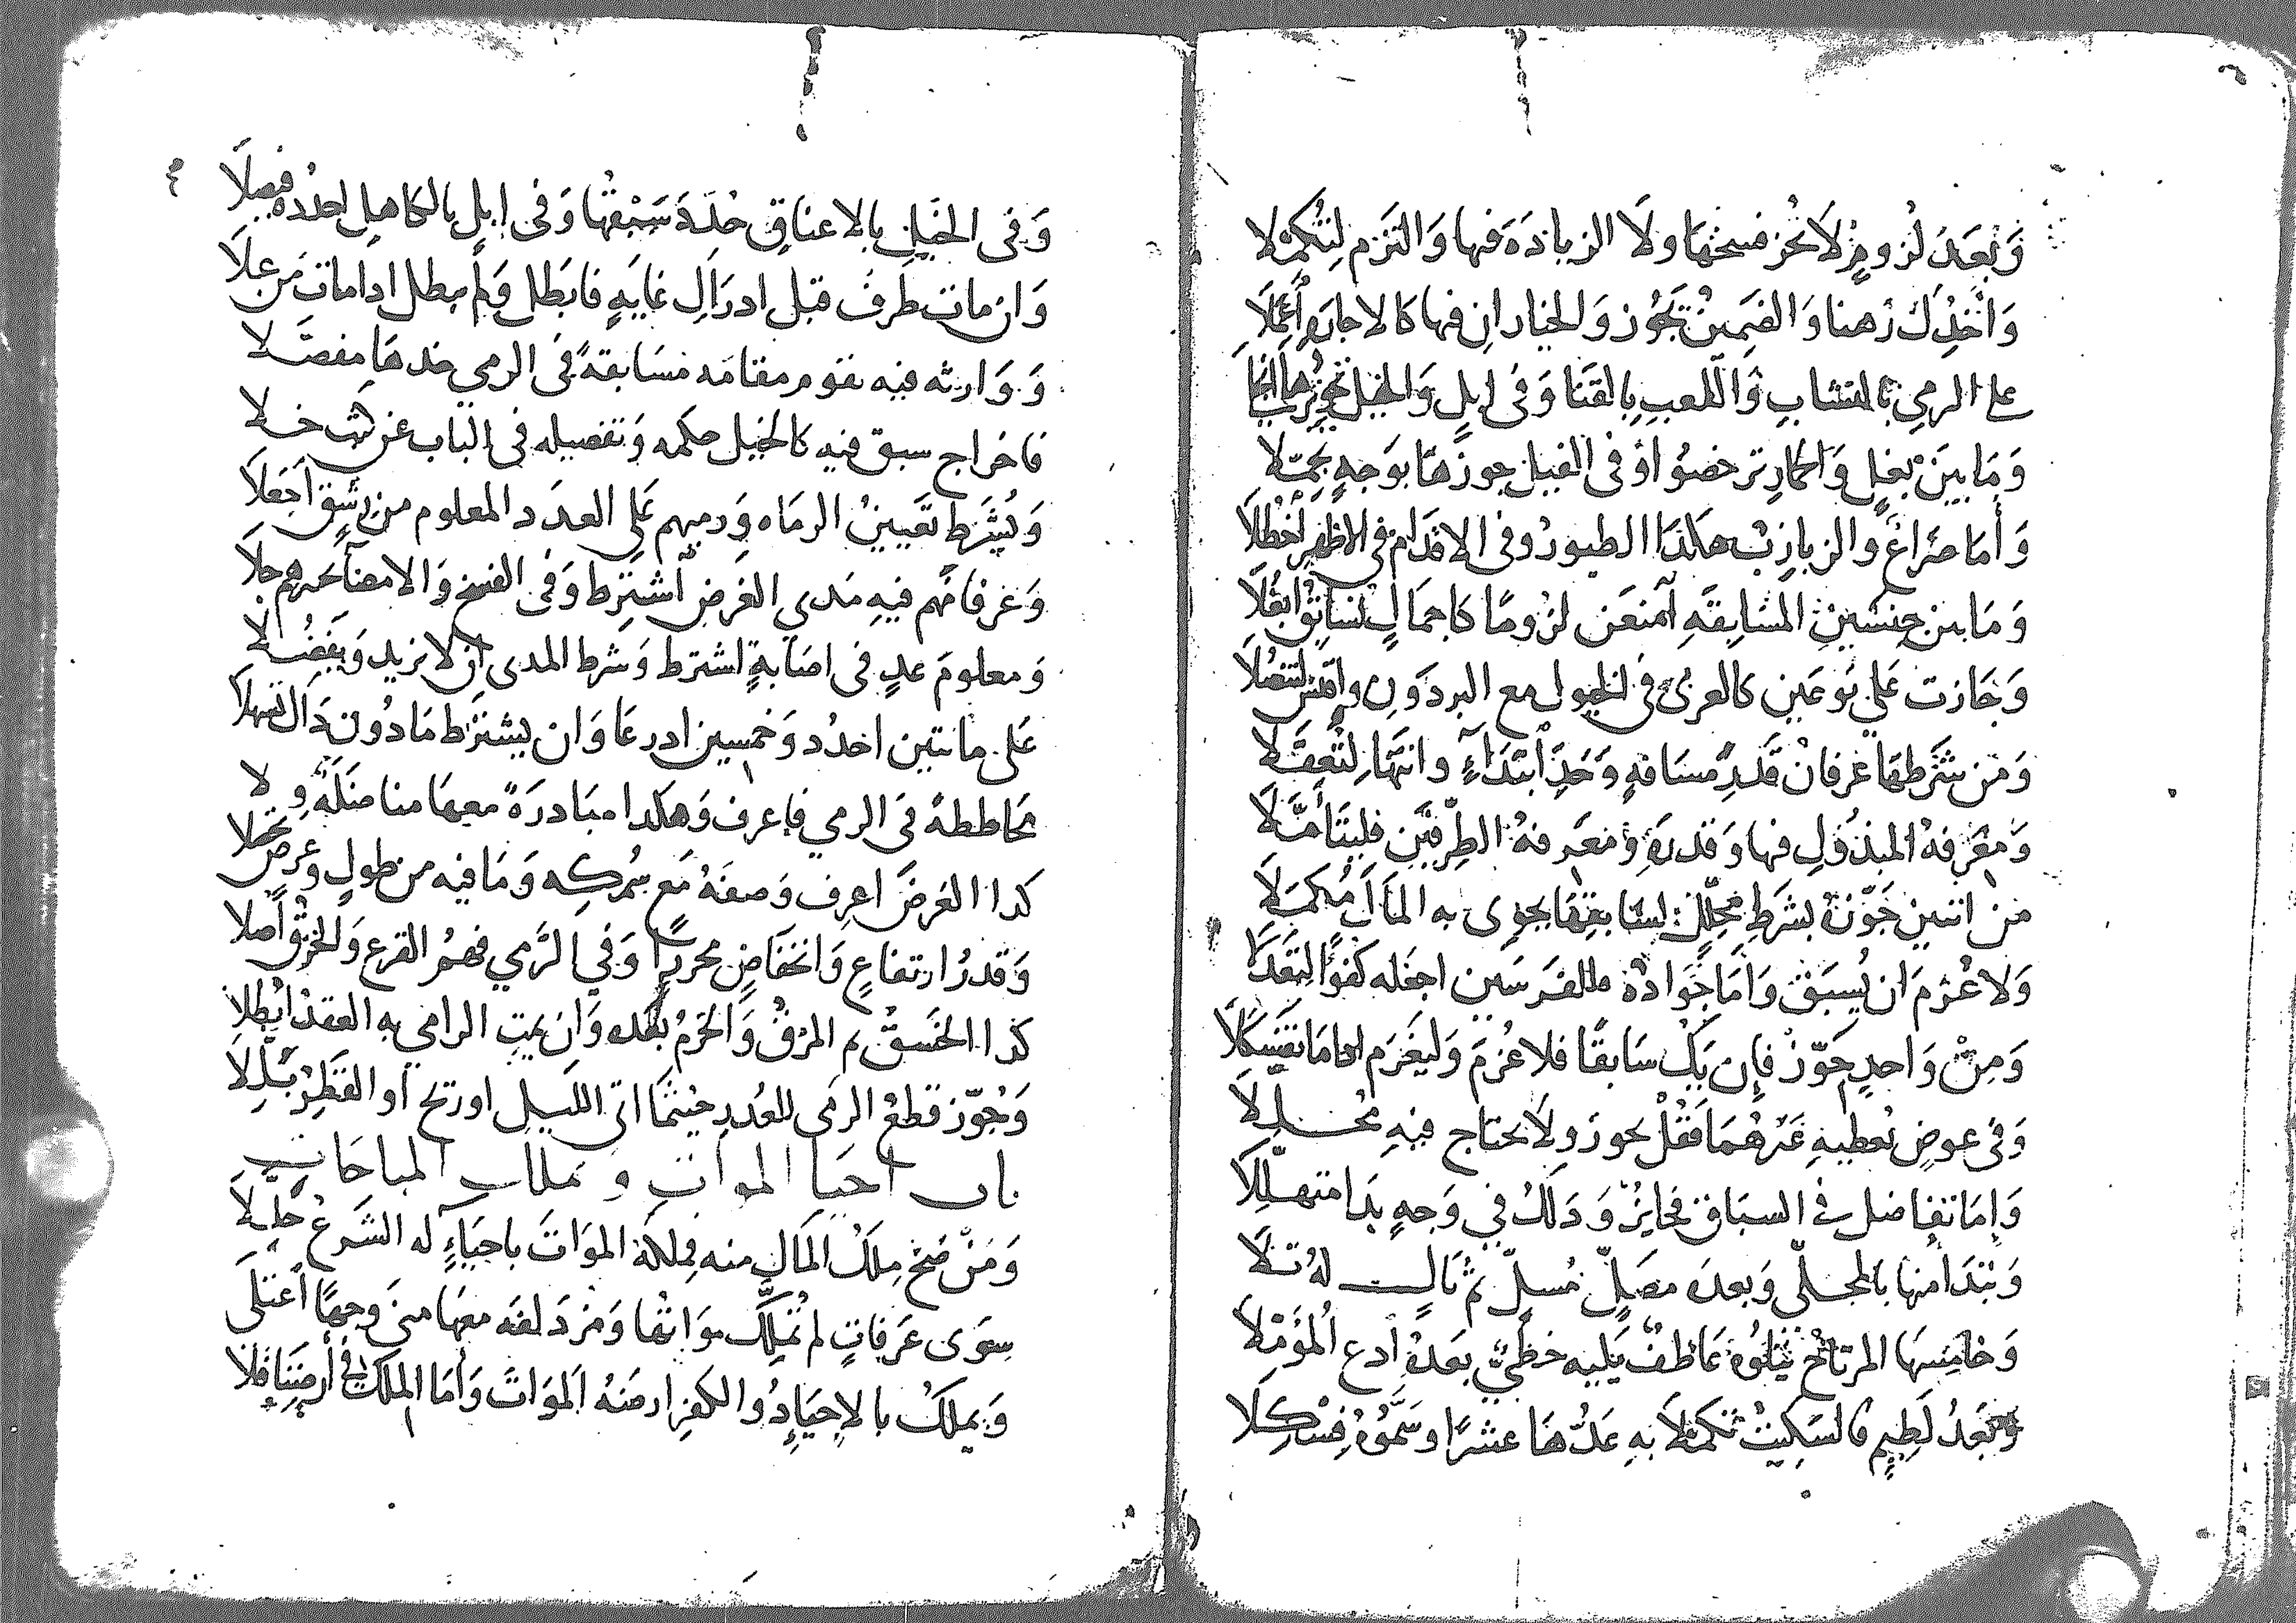 وَبَعدَ لُزومٍ لَا تُجز فسخَها ولَا الزيادَةَ فيها وَالتَزم لِتُكمّلا
وَاخذُكَ رَهنا وَالضَمِينُ تَجُوز وَالخياران فيها كالاجارةِ أُعمِلَا
على الرمي بالنشابِ وَاللعبِ بالقَنَا وَفى ابلٍ وَالخيل تجويزها
وَمَا بينَ بغلٍ وَالحمارِ ترخصُوا وَفى الفيل جوزهَا بوَجهٍ تجمّلا
وَأما صرَاعُ والزبازبُ هكذا الطيورُ وفى الاقدَامِ في الاظهرِ
وَمَا بين جنسَينِ المسَابقَةِ آمنعَن لزُومًا كاجمَالٍ تسَابقُ ابغُلَا
وَجَازت عَلي نَوعَينِ كالعربىِّ في الخيول مع البردَونِ
وَمن شَرطهَا عرفانُ قَدرِ مسَافةٍ وَحَدِّ ابتدَآءٍ وانتِهَا لِتُعقَلا
وَمَعرفَةُ المبذُولِ فيها وَقدرهِ وَمعَرفةُ الطِّرفَينِ فليتَأهَّلَا
من اثنين جَوّز بشَرطِ محلِّلٍ يسَابقهَا يحوى به المالَ مُكمَلَا
وَلا غُرْمَ ان يُسبَق وَأمَا جَوَادُهُ مالفَرسَين اجعَله كفوًا
وَمِنْ وَاحدٍ جَوّز فإن يكُ سَابقًا فلا غُرمَ وَليَغرَم اذا مَا تفَسكَلَا
وَفى عوضٍ نعطيهِ غيرُهُمَا فقُلْ يجوز ولَا يحتاج فيهِ محُللا
وَإمَا تفاضل في السبَاق فجايزٌ وَذلكُ في وَجهٍ بدا متهلّلِلَا
وَيبدَأ منها بالمجلّى وَبعدَه مصَلٍّ مُسلٍّ ثم تَالٍ لهُ تَلَا
وَخَامِسهَا المرتاحُ يتلوُهُ عَاطفٌ يَليه حَظيٌّ بعدهُ ادعِ المُؤَمّلَا
وَبَعدُ لَطيمٍ فالسَكيت تكمّلَا بهِ عَدُّهَا عشرًا وَسَمُّوهُ فِسْكِلَا
وَفى الخَيلِ بالاعناقِ حُدِّدَ سَبْقها وَفى ابلٍ بالكاهِل احدُدهُ فيصلَا
وَان مات طرفٌ قبل ادرَاكِ غايَةٍ فابَطل وَلم يبطل اذا مات مَن علَا
وَوَارثه فيه يقوم مقامَه مسَابقةً فى الرمي خدهَا مفصّلا
فاخراج سبق فيه كالخيل حكمه وَتفصيله فى الباب عن كثب خلا
وَيُشرَط تعَيينُ الرمَاه وَرميهم عَلى العدَد المعلوم من رشقٍ اجعَلَا
وَعرفانهم فيهِ مَدى الغرَض اشترِط وَفى الفسخ وَالامضآ
وَمعلومَ عدٍ فى اصَابةٍ اشترط وَشرط المدى ان لا نزيد وَيفضُلَا
عَلى مائتين احدُد وَخمسين ادرعَا وَان يشترَط مَا دُون دَاك تسهلَا
محاططةً فى الرمي فاعرف وَهكدا مبَادرَةً معهَا مناضلَةٌ وِلا
كدا الغرَضَ اعرف وَصفَهُ مَع سُمكِه وَمَا فيه من طولٍ وعرضٍ
وَقدرُ ارتفاعٍ وَانخفَاضٍ محررًا وَفي الرَّمي فهمُ القرع وَالخرق أصلا
كذا الخسَقُ ثم المرْقُ وَالخرمُ بعَده وَان يمت الرامي به العقدَ ابطلا
وَجُوّز قطعُ الرمى للعُدرِ حيثمَا اتى الليل او ريح او القطر بَلَّلَا
باب احيا الموات و تملك المباحات
وَمَنْ صَحّ مِلكُ المَال منه فمِلكهُ الموَاتَ باحيَاءٍ له الشَرعُ حَلّلَا
سِوَى عَرَفاتٍ لم تُمَلَّك موَاتُها وَمزدَلفَه معهَا منىً وجهًا اعتَلَى
وَيملكُ بالاحيَا ذُووا الكفرِ ارضَهُ الموَاتَ وَأمَا الملكُ في أرضنَا فلَا